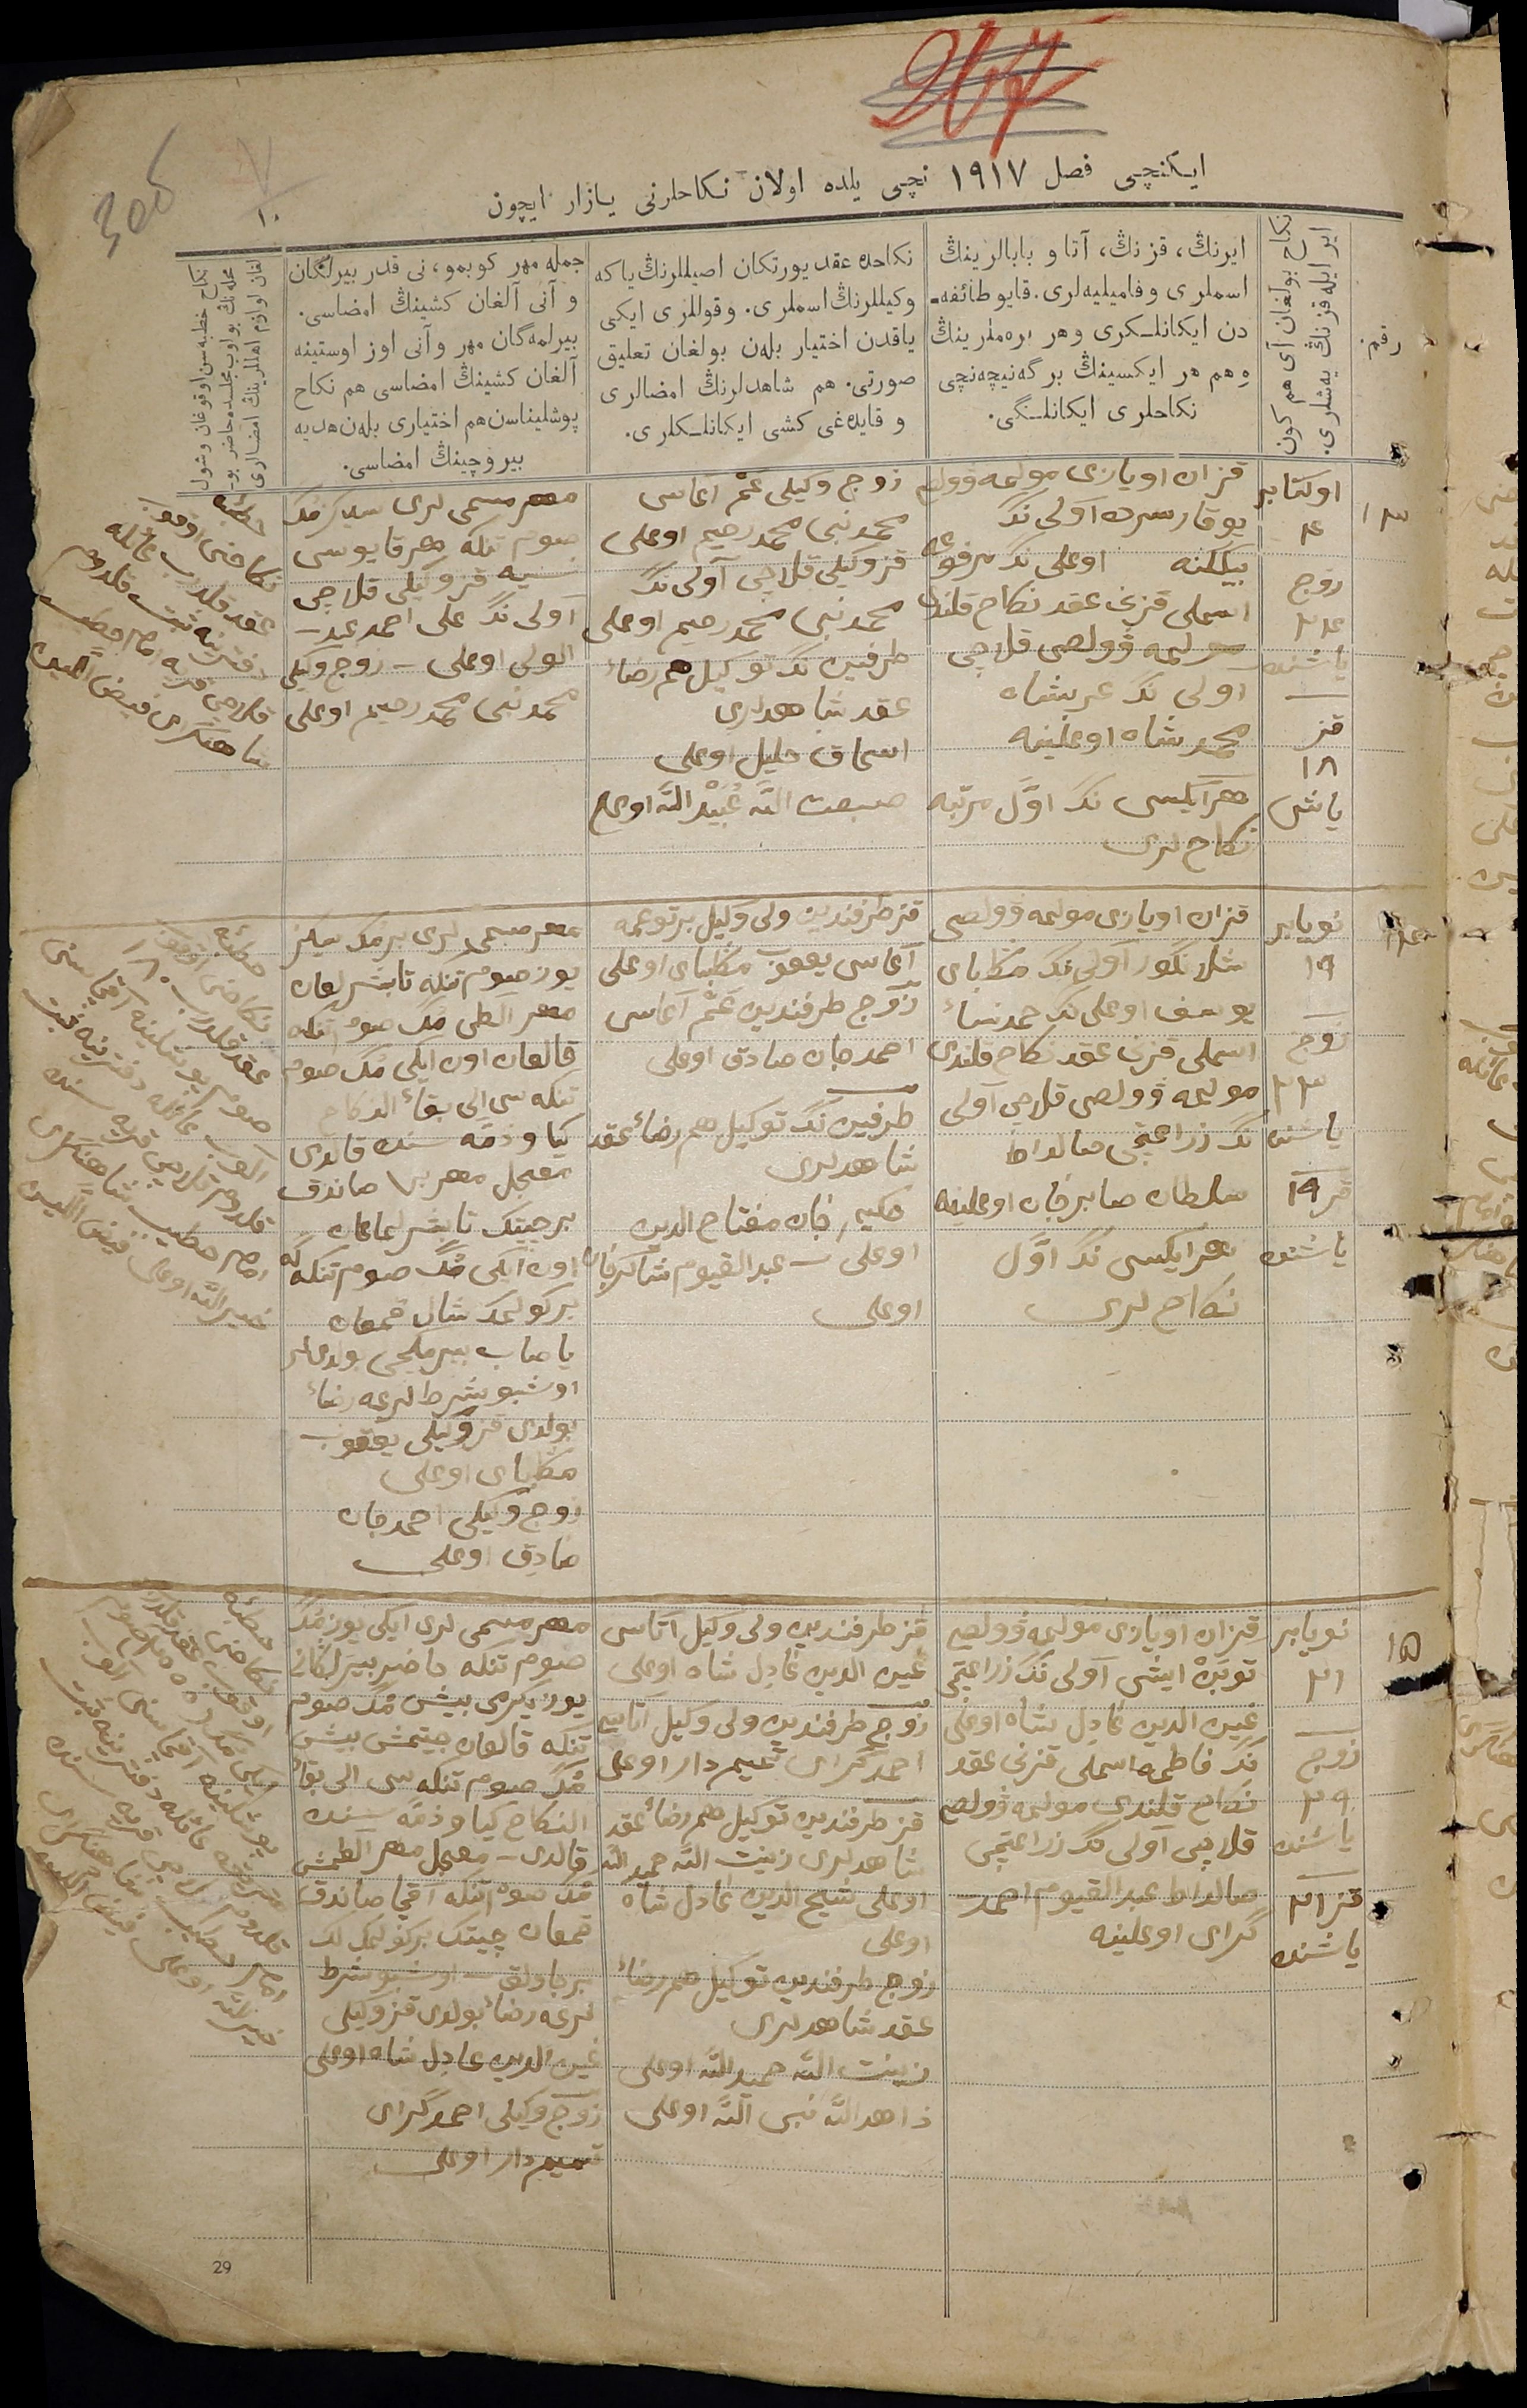 ایکنچی فصل ۱۹۱۷ نچی یلده اولان نکاحلرنی یازار ایچون
305
۱۰
رقم.
ایر ایله قزنڭ یه‌شلری.
نکاح بولغان آی هم کون
ایرنڭ، قزنڭ، آتا و بابالرینڭ
اسملری و فامیلیه‌لری. قایو طائفه‌-
دن ایکانلـکری وهر بره‌ملرینڭ
وهم هر ایکسینڭ برگه‌نیچه‌نچی
نکاحلری ایکانلـگی.
نکاحده عقد یورتکان اصیللرنڭ یا که
وکیللرنڭ اسملری. وقوللری ایکی
یاقدن اختیار بله‌ن بولغان تعلیق
صورتی. هم شاهدلرنڭ امضالری
و قایده‌غی کشی ایکانلـکلری.
جمله مهر کوبمو، نی قدر بیرلگان
و آنی آلغان کشینڭ امضاسی.
بیرلمه‌گان مهر وآنی اوز اوستینه
آلغان کشینڭ امضاسی هم نکاح
پوشلیناسن هم اختیاری بله‌ن هدیه
بیروچینڭ امضاسی.
نکاح خطبه‌سن اوقوغان وشول
محله‌نڭ بولوب مجلسده حاضر بو-
لغان لوازم اهللرینڭ امضالری
۱۳
اوکتابر
۴
زوج
۲۴
یاشنده
قز
۱۸
یاش
قزان اویازی مولمه ڤولص
یوقارسرده آولی نڭ
اوغلی نڭ مرفوعه
اسملی قزنی عقد نکاح قلندی
مولمه ڤولصی قلاچی
اولی نڭ عربشاه
محمدشاه اوغلینه
هر ایکسی نڭ اوّل مرتبه
نکاح لری
زوج وکیلی عَم آغاسی
محمدنبی محمدرحیم اوغلی
قز وکیلی قلاچی آولی نڭ
محمدنبی محمدرحیم اوغلی
طرفین نڭ توکیل هم رضاء
عقد شاهدلری
اسحاق خلیل اوغلی
صبعت الله عُبَیْدالله اوغلی
مهر مسمی لری سیکز مڭ
صوم تنکه مهر قایوسی
نسیه قز وکیلی قلاچی
آولی نڭ علی احمد عبد-
الولی اوغلی – زوج وکیلی
محمدنبی محمدرحیم اوغلی
خطبه
نکاحنی اوقوب
عقد قلدرب عائله
دفترینه ثبت قلدوم
قلاچی قریه امام خطیب
شاهنگرای فیض الدین
۱۴
نویابر
۱۹
زوج
۲۳
یاشنده
قز ۱۹
یاشنده
قزان اویازی مولمه ڤولصی
شلانگور آولی نڭ مظبای
یوسف اوغلی نڭ حمدنساء
اسملی قزنی عقد نکاح قلندی
مولمه ڤولصی قلاچی آولی
نڭ زراعتچی صالداط
سلطان صابرجان اوغلینه
هر ایکسی نڭ اوّل
نکاح لری
قز طرفندین ولی وکیل برتوغمه
آغاسی یعقوب مظبای اوغلی
زوج طرفندین عَم آغاسی
احمدجان صادق اوغلی
طرفین نڭ توکیل هم رضاء عقد
شاهدلری
حکیم جان مفتاح الدین
اوغلی – عبدالقیوم شاکرجان
اوغلی
مهر مسمی لری بر مڭ سیکز
یوز صوم تنکه تابشرلغان
مهر آلطی مڭ صوم تنکه
قالغان اون ایکی مڭ صوم
تنکه سی الی بقاء النکاح
کیاو ذمّه سنده قالدی
معجل مهر بر صاندق
بر چیتک تابشرلماغان
اون ایکی مڭ صوم تنکه گه
بر کولمک شال قمعان
یاصاب بیرمکچی بولدیلر
اوشبو شرط لرغه رضاء
بولدی قز وکیلی یعقوب
مظبای اوغلی
زوج وکیلی احمدجان
صادق اوغلی
خطبه
نکاحنی اوقوب
عقد قلدرب ۱۸۰
صوم پوشلینه آقچاسنی
آلوب عائله دفترینه ثبت
قلدوم قلاچی قریه سنده
امام خطیب شاهنگرای
نصیرالله اوغلی فیض الدین
۱۵
نویابر
۲۱
زوج
۲۹
یاشنده
قز ۲۱
یاشنده
قزان اویازی مولمه ڤولص
توبَرَه ایشی آولی نڭ زراعتچی
عین الدین عادل شاه اوغلی
نڭ فاطمه اسملی قزنی عقد
نکاح قلندی مولمه ڤولص
قلاچی آولی نڭ زراعتچی
صالداط عبدالقیوم احمد-
گرای اوغلینه
قز طرفندین ولی وکیل آتاسی
عین الدین عادل شاه اوغلی
زوج طرفندین ولی وکیل آتاسی
احمدگرای تمیم دار اوغلی
قز طرفندین توکیل هم رضاء عقد
شاهدلری زینت الله حمیدالله
اوغلی شیخ الدین عادل شاه
اوغلی
زوج طرفندین توکیل هم رضاء
عقد شاهدلری
زینت الله حمیدالله اوغلی
زاهدالله نبی الله اوغلی
مهر مسمی لری ایکی یوز مڭ
صوم تنکه حاضر بیرلگانی
یوز یکرمی بیش مڭ صوم
تنکه قالغان جیتمش بیش
مڭ صوم تنکه سی الی بقاء
النکاح کیاو ذمّه سنده
قالدی – معجل مهر آلطمش
مڭ صوم تنکه آقچا صاندق
قمعان چیتک بر کولمک لک
بر جاولق – اوشبو شرط
لرغه رضاء بولدی قز وکیلی
عین الدین عادل شاه اوغلی
زوج وکیلی احمدگرای
تمیم دار اوغلی
خطبه
29